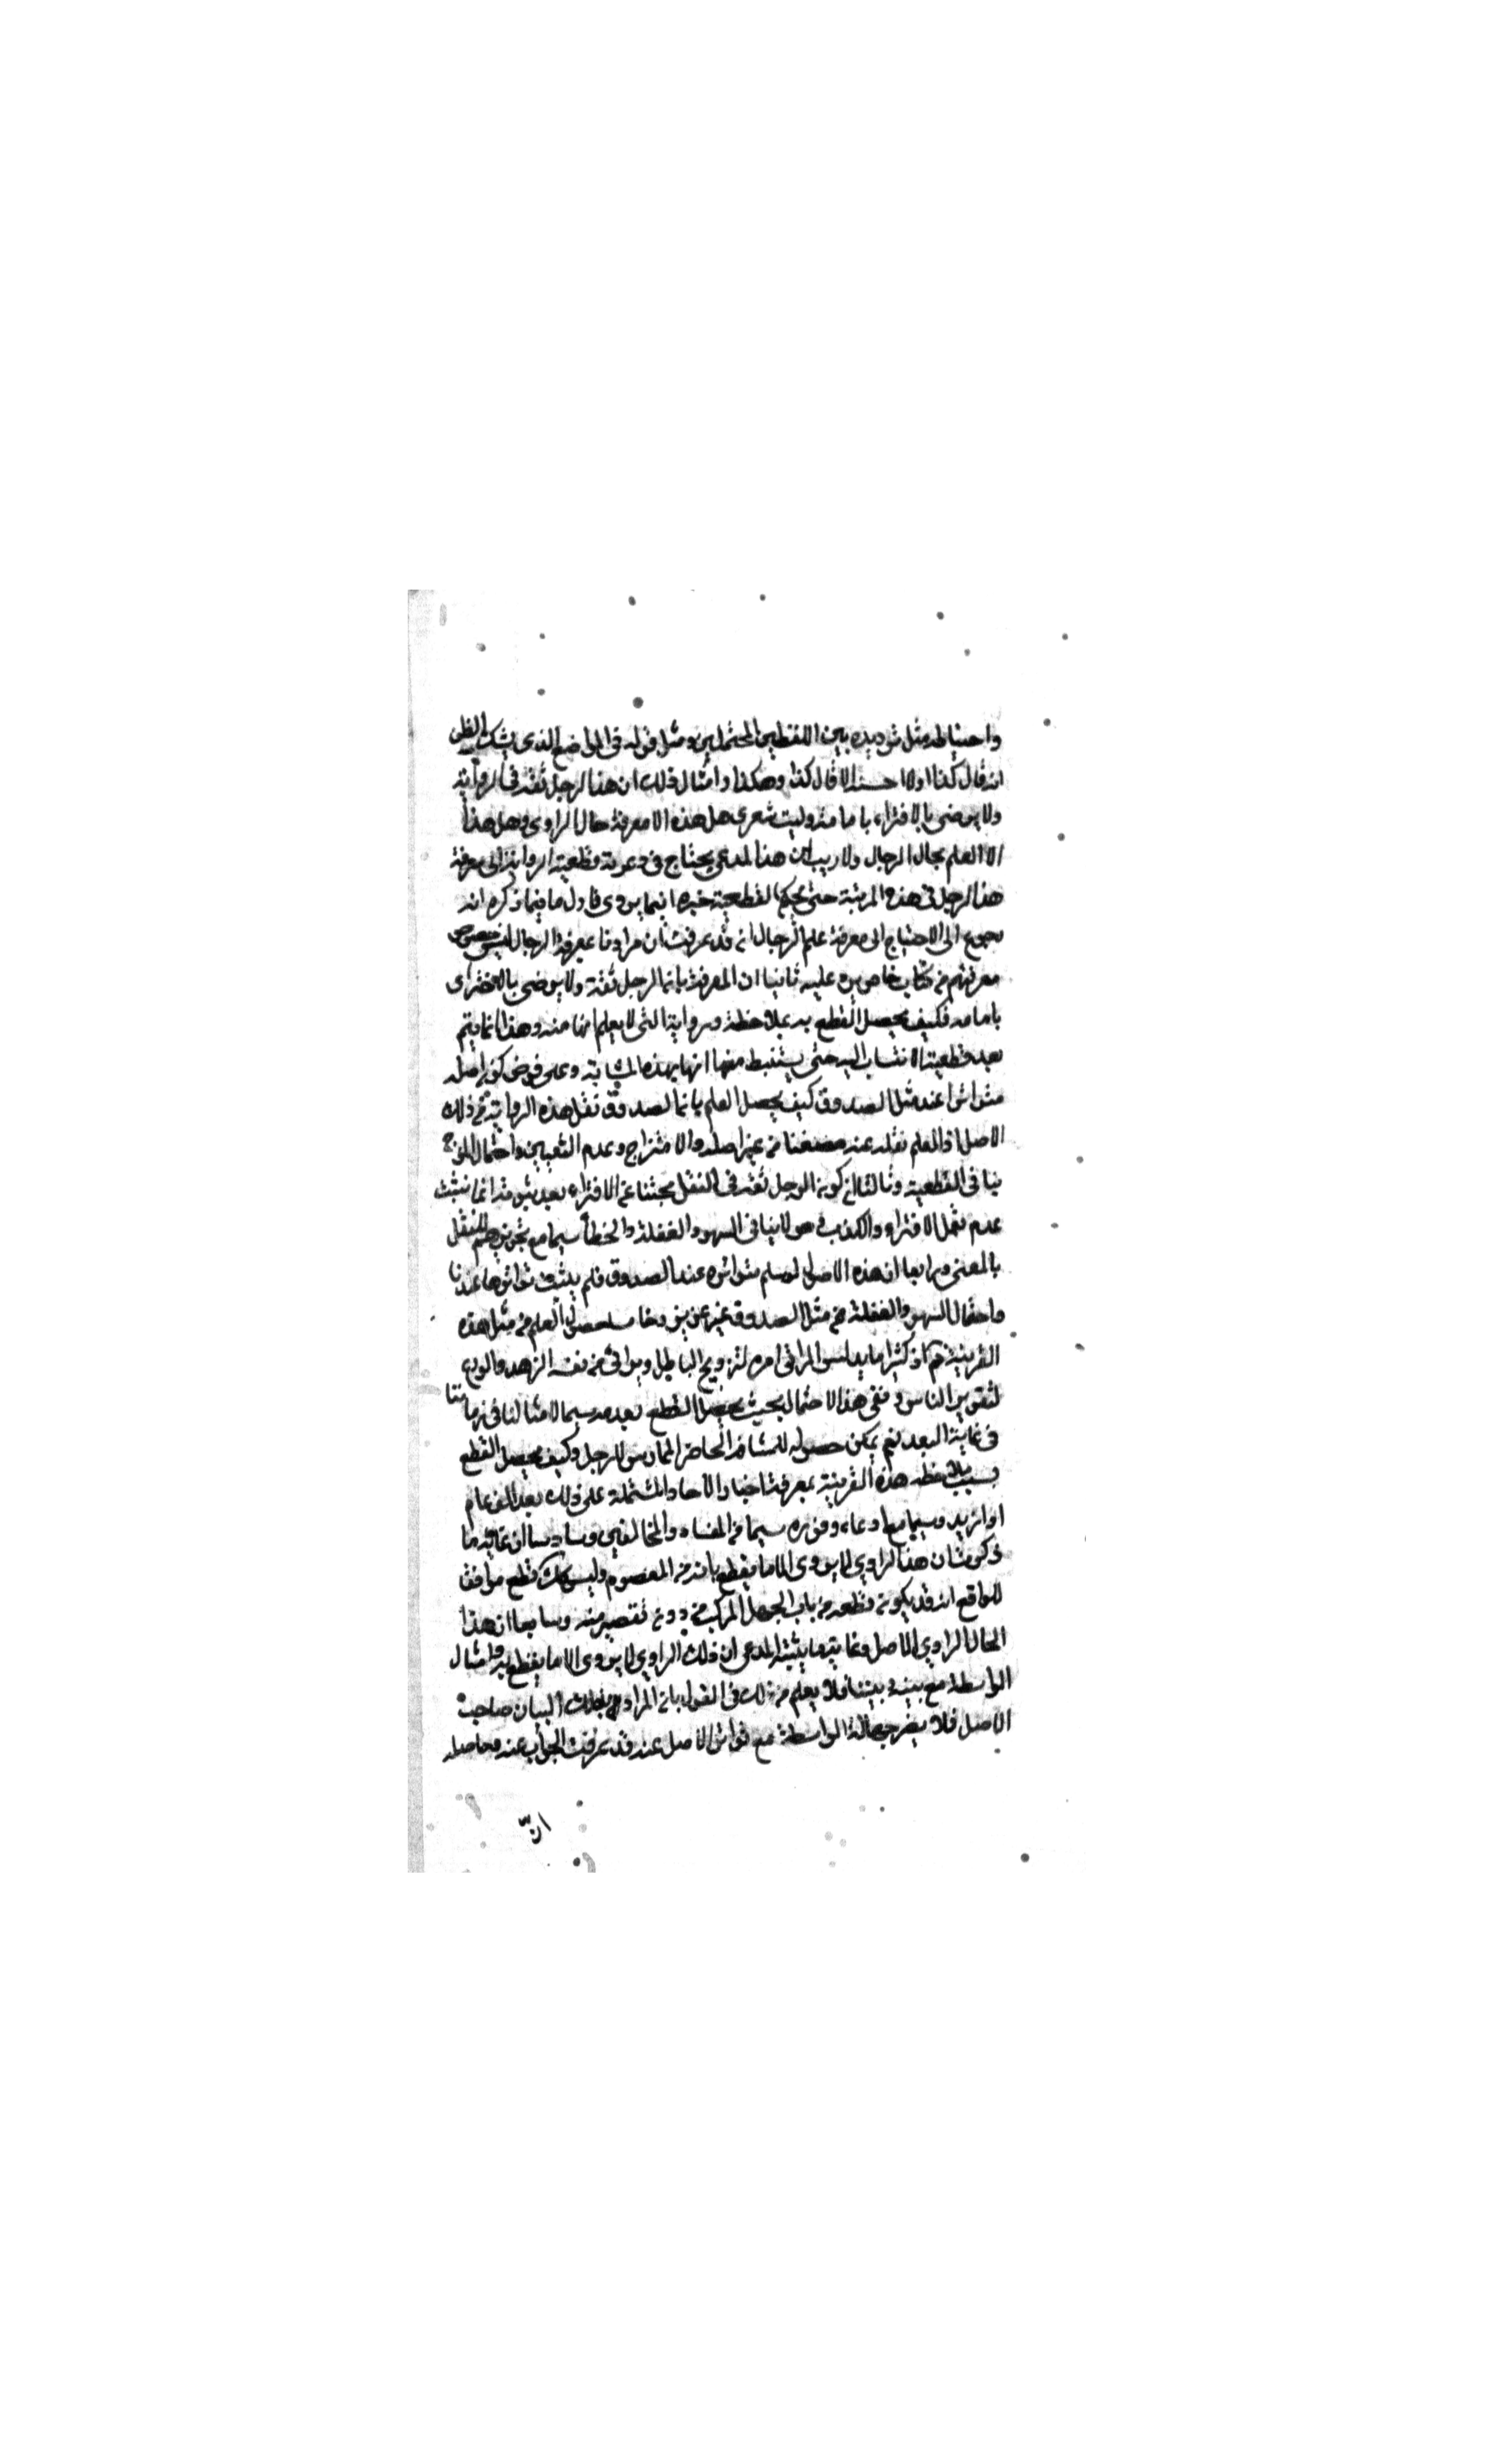 واحتياطه مثل ترديده بين اللفظين المحتملين ومثل قوله في المواضع الذي يشك الظن
انه قال كذا اولا احسبه الا قال كذا وهكذا وامثال ذلك ان هذا الرجل ثقة في الرواية
ولا يرضى بالافتراء بامامه وليت شعري هل هذه الا معرفة حال الراوي وهل هذا
الا العلم بحال الرجال ولا ريب ان هذا المدعي يحتاج في دعوية قطعية الرواية الى معرفة
هذا الرجل في هذه المرتبة حتى يحكم القطعية خبره انما يروى فاول ما فيما ذكره انه
رجوع الى الاحتياج الى معرفة علم الرجال اذ قد عرفت ان مرادنا بمعرفة الرجال ليس خصوص
معرفتهم من كتاب خاص يرد عليه ثانيا ان المعرفة بان الرجل ثقة ولا يرضى بالافتراى
بامامه فكيف يحصل القطع به بملاحظة رواية التي لا يعلم انها منه وهذا انما يتم
بعد قطعية الانتساب اليه حتى يستنبط منها انها بهذه المثابة وعلى فرض كون اصله
متواترا عند مثل الصدوق كيف يحصل العلم بان الصدوق نقل هذه الرواية من ذلك
الاصل اذ العلم نقله عنه من غير اصله والامتزاج وعدم التعيين واحتمال
ينافي القطعية وثالثا ان كون الرجل ثقة في النقل مجتنبا عن الافتراء بعد ثبوته انما يثبت
عدم تعمد الافتراء والكذب وهو لا ينافي السهو والغفلة والخطأ سيما مع تجويزهم للنقل
بالمعنى ورابعا ان هذه الاصول لو سلم متواتره عند الصدوق فلم يثبت تواترها عندنا
واحتمال السهو والغفلة من مثل الصدوق غير عزيز وخامسا حصول العلم من مثل هذه
القرينة مم اذ كثيرا ما يدلس المرء في امره لترويج الباطل ويرائى من نفسه الزهد والورع
لتغرير الناس فنفى هذا الاحتمال بحيث يحصل القطع بعدمه سيما لامثالنا في زماننا
في غاية البعد نعم يمكن حصوله للمشافه الحاضر الممارس للرجل وكيف يحصل القطع
بسبب ملاحظه هذه القرينة بمعرفة اخبار الآحاد المشتملة على ذلك بعد الف عام
او ازيد وسيما مع ادعاء وفوره سيما من الفساد والمخالفين وسادسا ان غاية ما
ذكر ان هذا الراوي لا يروى الا ما يقطع بانه من المعصوم وليس كل قطع موافقا
للواقع اذ قد يكون قطعه من باب الجهل المركب من دون تقصير منه وسابعا ان هذا
الحال الراوي الاصل وغاية ما يثبته المدعى ان ذلك الراوي لا يروى الا ما يقطع به وامثال
الواسطة مع بينه وبيننا فلا يعلم من ذلك في القول بان المراد بذلك البيان صاحب
الاصل فلا يضر جهالة الواسطة مع تواتر الاصل عنه قد عرفت الجواب عنه وحاصله